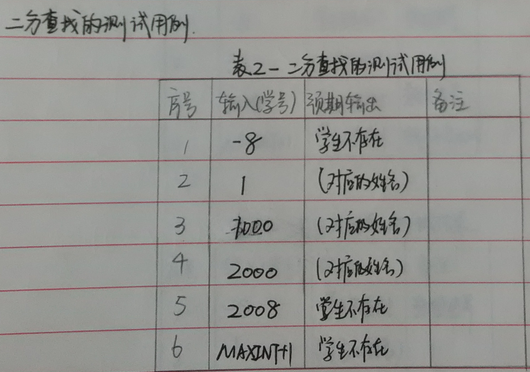 二分查找的测试用例.
表2-二分查找的测试用例
序号 输入(学号) 预期输出 备注
1 -8 学生不存在
2 1 (对应的姓名)
3 1000 (对应的姓名)
4 2000 (对应的姓名)
5 2008 学生不存在
6 MAXINT+1 学生不存在